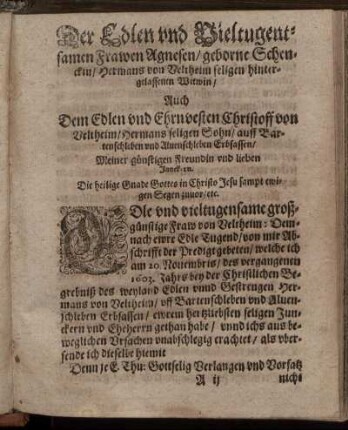 Der Edlen vnd Vieltugent-
samen Frawen Agnesen/ geborne Schen-
ckin/ Hermans von Veltheim seligen hinter-
gelassenen Witwin/
Auch
Dem Edlen vnd Ehrnvesten Christoff von
Veltheim/ Hermans seligen Sohn/ auff Bar-
tenschleben vnd Aluenschleben Erbsassen/
Meiner günstigen Freundin vnd lieben
Junck-rn.
Die heilige Gnade Gottes in Christo Jesu sampt ewi-
gen Segen zuuor/ etc.
EDle vnd vieltugensame groß-
günstige Fraw von Veltheim: Dem-
nach ewre Edle Tugend/ von mir Ab-
schrifft der Predigt gebeten/ welche ich
am 20. Nouembris/ des vergangenen
1603. Jahrs bey der Christlichen Be-
grebniß des weyland Edlen vnnd Gestrengen Her-
mans von Veltheim/ vff Bartenschleben vnd Aluen-
schleben Erbsassen/ ewrem hertzliebsten seligen Jun-
ckern vnd Eheherrn gethan habe/ vnnd ichs aus be-
weglichen Vrsachen vnabschlegig erachtet/ als vber-
sende ich dieselbe hiemit
Denn je E. Thu: Gottselig Verlangen vnd Vorsatz
A ij nicht